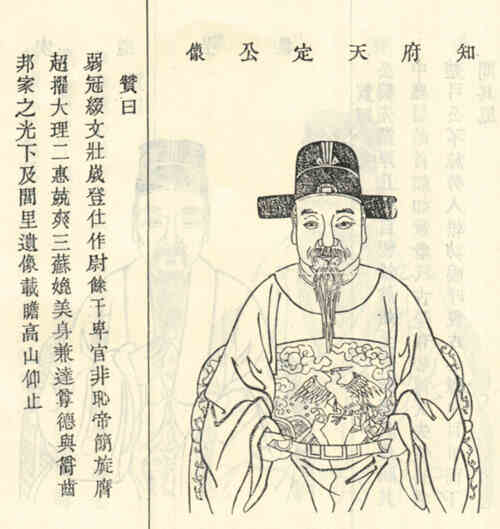 知府天定公像
贊曰
弱冠綴文壯歲登仕作尉餘干卑官非恥帝簡旋膺
超擢大理二惠兢爽三蘇媲美身兼達尊德與爵齒
邦家之光下及閭里遺像載瞻高山仰止